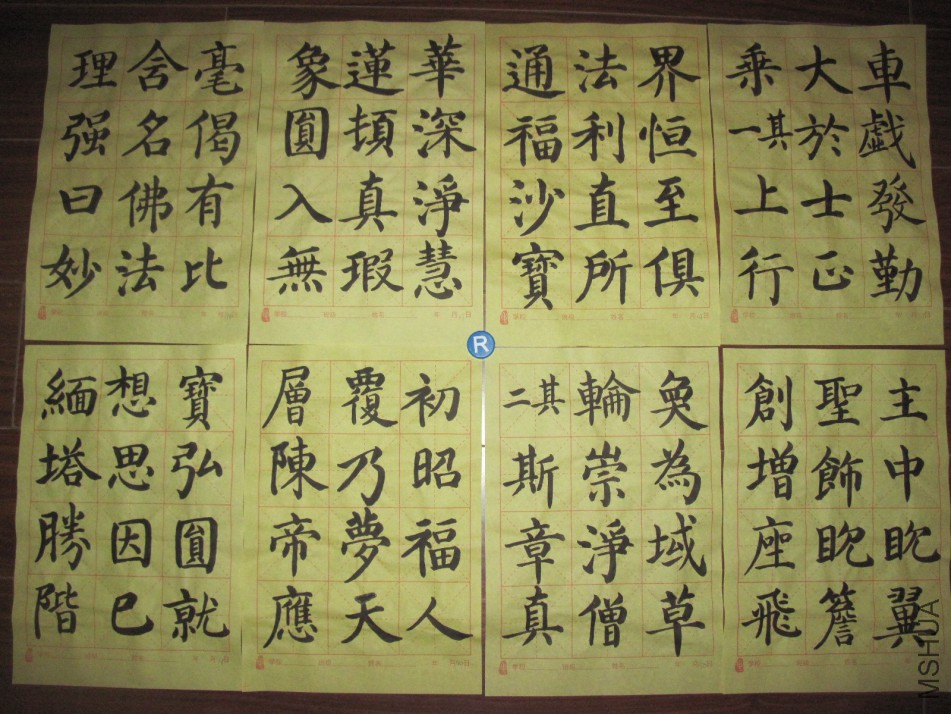 理舍毫
强名偈
曰佛有
妙法比
象蓮華
圓頓深
入真淨
無瑕慧
通法界
福利恒
沙直至
寶所俱
乘大車
其一於戲
上士發
行正勤
緬想寶
塔思弘
勝因圓
階已就
層覆初
陳乃昭
帝夢福
應天人
其二輪奐
斯崇為
章淨域
真僧草
創聖主
增飾中
座眈眈
飛簷翼
R
MSHUA